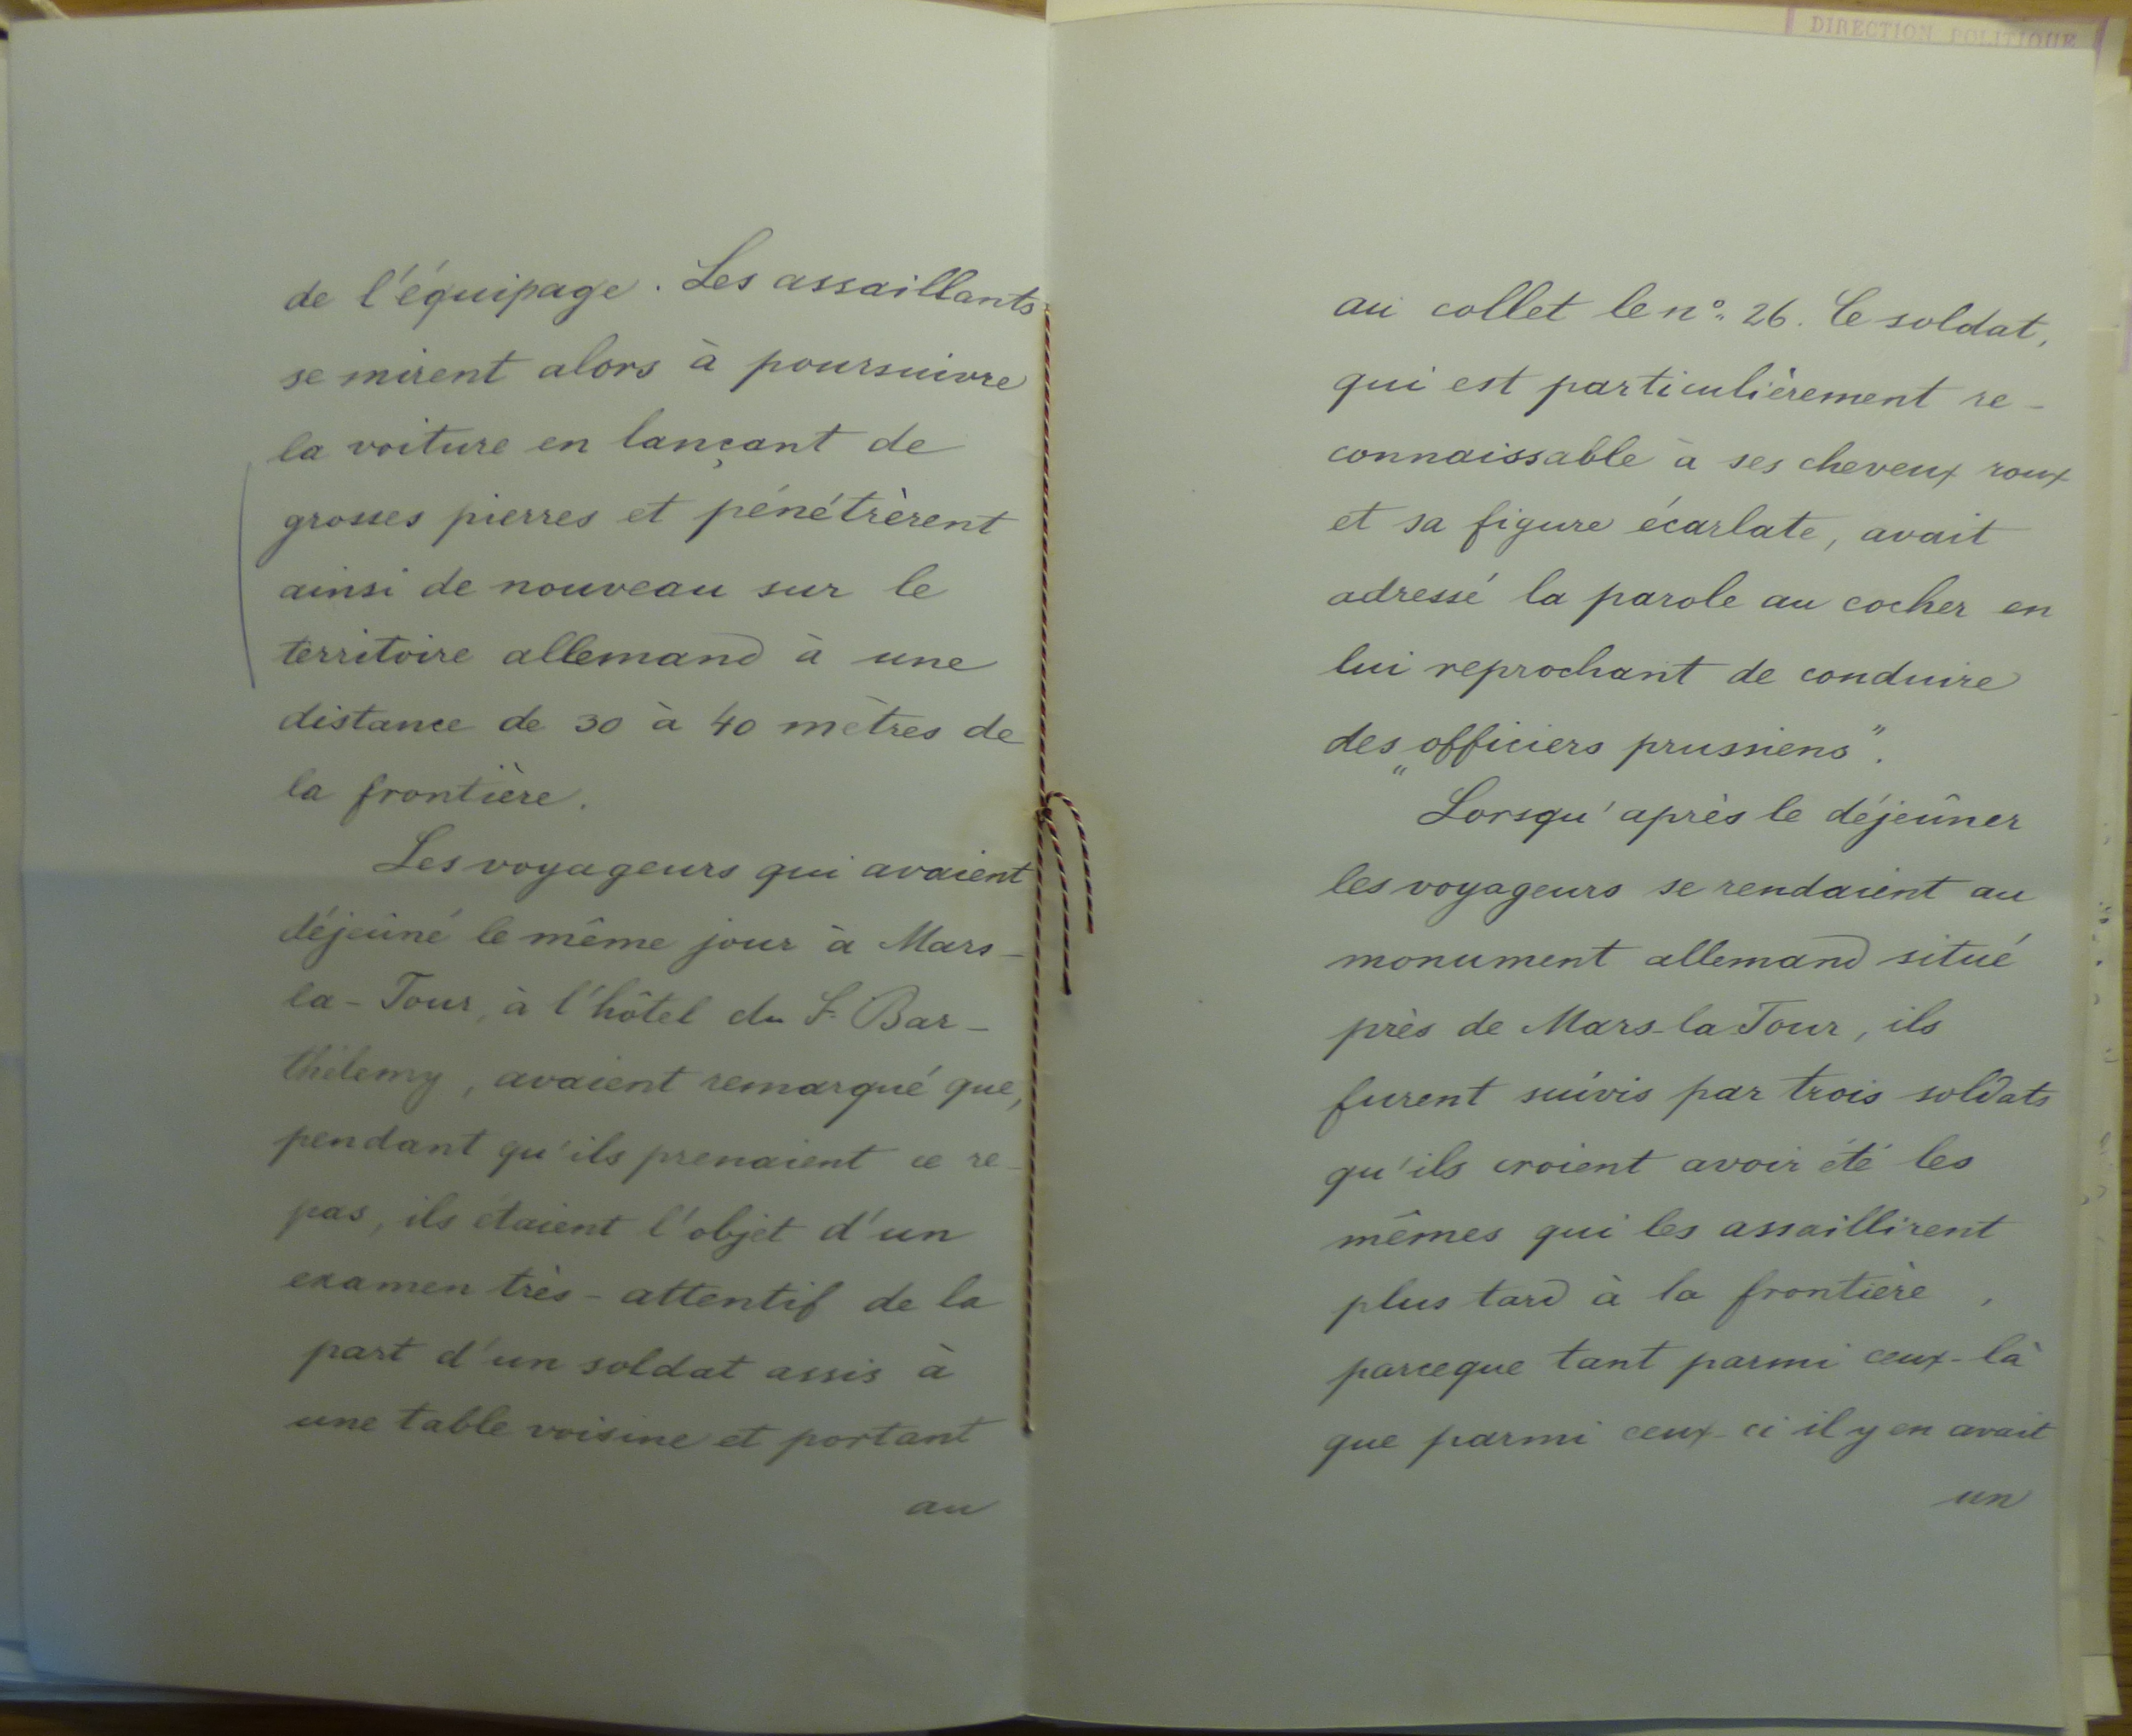 de l'équipage. Les assaillants
se mirent alors à poursuivre
la voiture en lançant de
grosses pierres et pénétrèrent
ainsi de nouveau sur le
territoire allemand à une
distance de 30 à 40 mètres de
la frontière.
Les voyageurs qui avaient
déjeûné le même jour à Mars-
la-Tour, à l'hôtel du St. Bar-
thélemy, avaient remarqué que,
pendant qu'ils prenaient ce re-
pas, ils étaient l'objet d'un
examen très-attentif de la
part d'un soldat assis à
une table voisine et portant
au
DIRECTION POLITIQUE
au collet le no. 26. Ce soldat,
qui est particulièrement re-
connaissable à ses cheveux roux
et sa figure écarlate, avait
adressé la parole au cocher en
lui reprochant de conduire
des „officiers prussiens".
Lorsqu'après le déjeûner
les voyageurs se rendaient au
monument allemand situé
près de Mars-la Tour, ils
furent suivis par trois soldats
qu'ils croient avoir été les
mêmes qui les assaillirent
plus tard à la frontière,
parceque tant parmi ceux-là
que parmi ceux-ci il y en avait
un